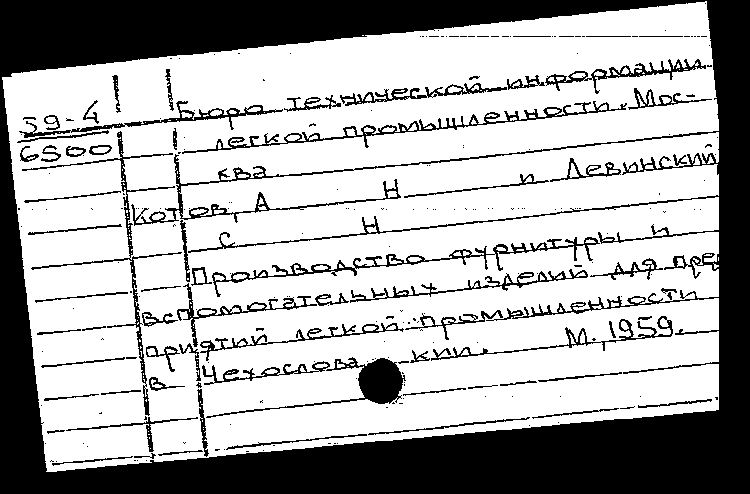 59-4 Бюро технической информации
6500 легкой промышленности. Мос-
ква
Котов, А Н и Левинский,
С Н
Производство фурнитуры и
вспомогательных изделий для пред
приятий легкой промышленности
в Чехослова кии. М., 1959.